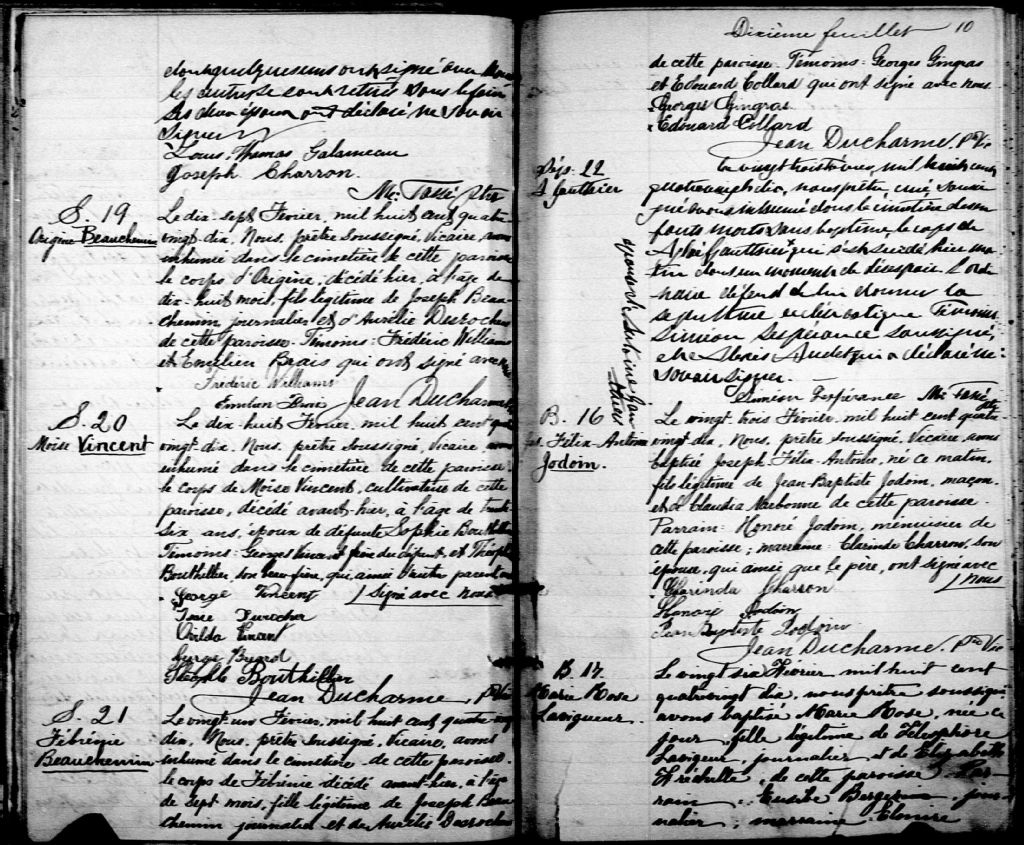 dont quelques uns ont signé avec nous
les autres se sont retirés sans le faire
les deux époux ont déclaré ne savoir
signer
Louis Thomas Galarneau
Joseph Charron.
M. Tassé Ptre
S. 19
Origène Beauchemin
Le dix-sept Février, mil huit cent quatre
vingt-dix, Nous, prêtre soussigné, vicaire, avons
inhumé dans le cimetière de cette paroisse
le corps d'Origène, décédé hier, à l'age de
dix-huit mois, fils légitime de Joseph Beau-
chemin journalier et d'Aurélie Desrochers
de cette paroisse. Témoins: Frédéric Williams
et Emilien Brais qui ont signé avec nous
Frédéric Williams
Emilien Brais Jean Ducharme
S. 20
Moïse Vincent
Le dix-huit Février, mil huit cent quatre
vingt-dix, Nous, prêtre soussigné, Vicaire, avons
inhumé dans le cimetière de cette paroisse
le corps de Moïse Vincent, cultivateur de cette
paroisse, décédé avant-hier, à l'age de
six ans, époux de défunte Sophie Bouthillier
Témoins: Georges Vincent frère du défunt, et Théophile
Bouthillier, son beau-frère, qui, ainsi
George Vincent / Signé avec nous
Vincent
Théophile Bouthillier
Jean Ducharme, Ptre Vic
S. 21
Fébrénie
Beauchemin
Le vingt-un Février, mil huit cent quatre-vingt
dix, Nous, prêtre soussigné, Vicaire, avons
inhumé dans le cimetière de cette paroisse
le corps de Fébrénie décédé avant-hier, à l'age
de sept mois, fille légitime de Joseph Beau
chemin journalier et de Aurélie Desrochers
Dixième feuillet 10
de cette paroisse. Témoins: Georges Gingras
et Edouard Collard qui ont signé avec nous
Georges Gingras
Edouard Collard
Jean Ducharme. Ptre Vic
Dép. 22
A Gauthier
Le vingt trois février, mil huit cent
quatrevingt dix, nous prêtre, curé, sous
signé avons inhumé dans le cimetière des en
fants morts sans baptême, le corps de
Gauthier qui s'est suicidé hier ma
tin dans un moment de désespoir. L'ordi
naire défend de lui donner la
sépulture ecclésiastique Témoins
Siméon Lespérance soussigné,
et Alexis Audet qui a déclaré ne
savoir signer.
Siméon Lespérance M. Tassé
B. 16
Jos. Félix-Antoine
Jodoin.
Le vingt trois Février, mil huit cent quatre
vingt dix, Nous, prêtre soussigné, Vicaire, avons
baptisé Joseph-Félix-Antoine, né ce matin,
fils légitime de Jean-Baptiste Jodoin, maçon,
et d'Claudia Narbonne de cette paroisse.
Parrain: Honoré Jodoin, menuisier de
cette paroisse; marraine: Clarinde Charron, son
épouse, qui ainsi que le père, ont signé avec
/ nous
Clarinda Charron
Honoré Jodoin
Jean Baptiste Jodoin
Jean Ducharme. Ptre Vic
B. 17.
Marie Rose
Lavigueur.
Le vingt six Février mil huit cent
quatrevingt dix, nous prêtre soussigné
avons baptisé Marie Rose, née ce
jour, fille légitime de Télesphore
Lavigueur, journalier et de Elizabeth
Fréchette, de cette paroisse. Par-
rain, Eusèbe Bergevin, jour-
nalier, marraine Elmire